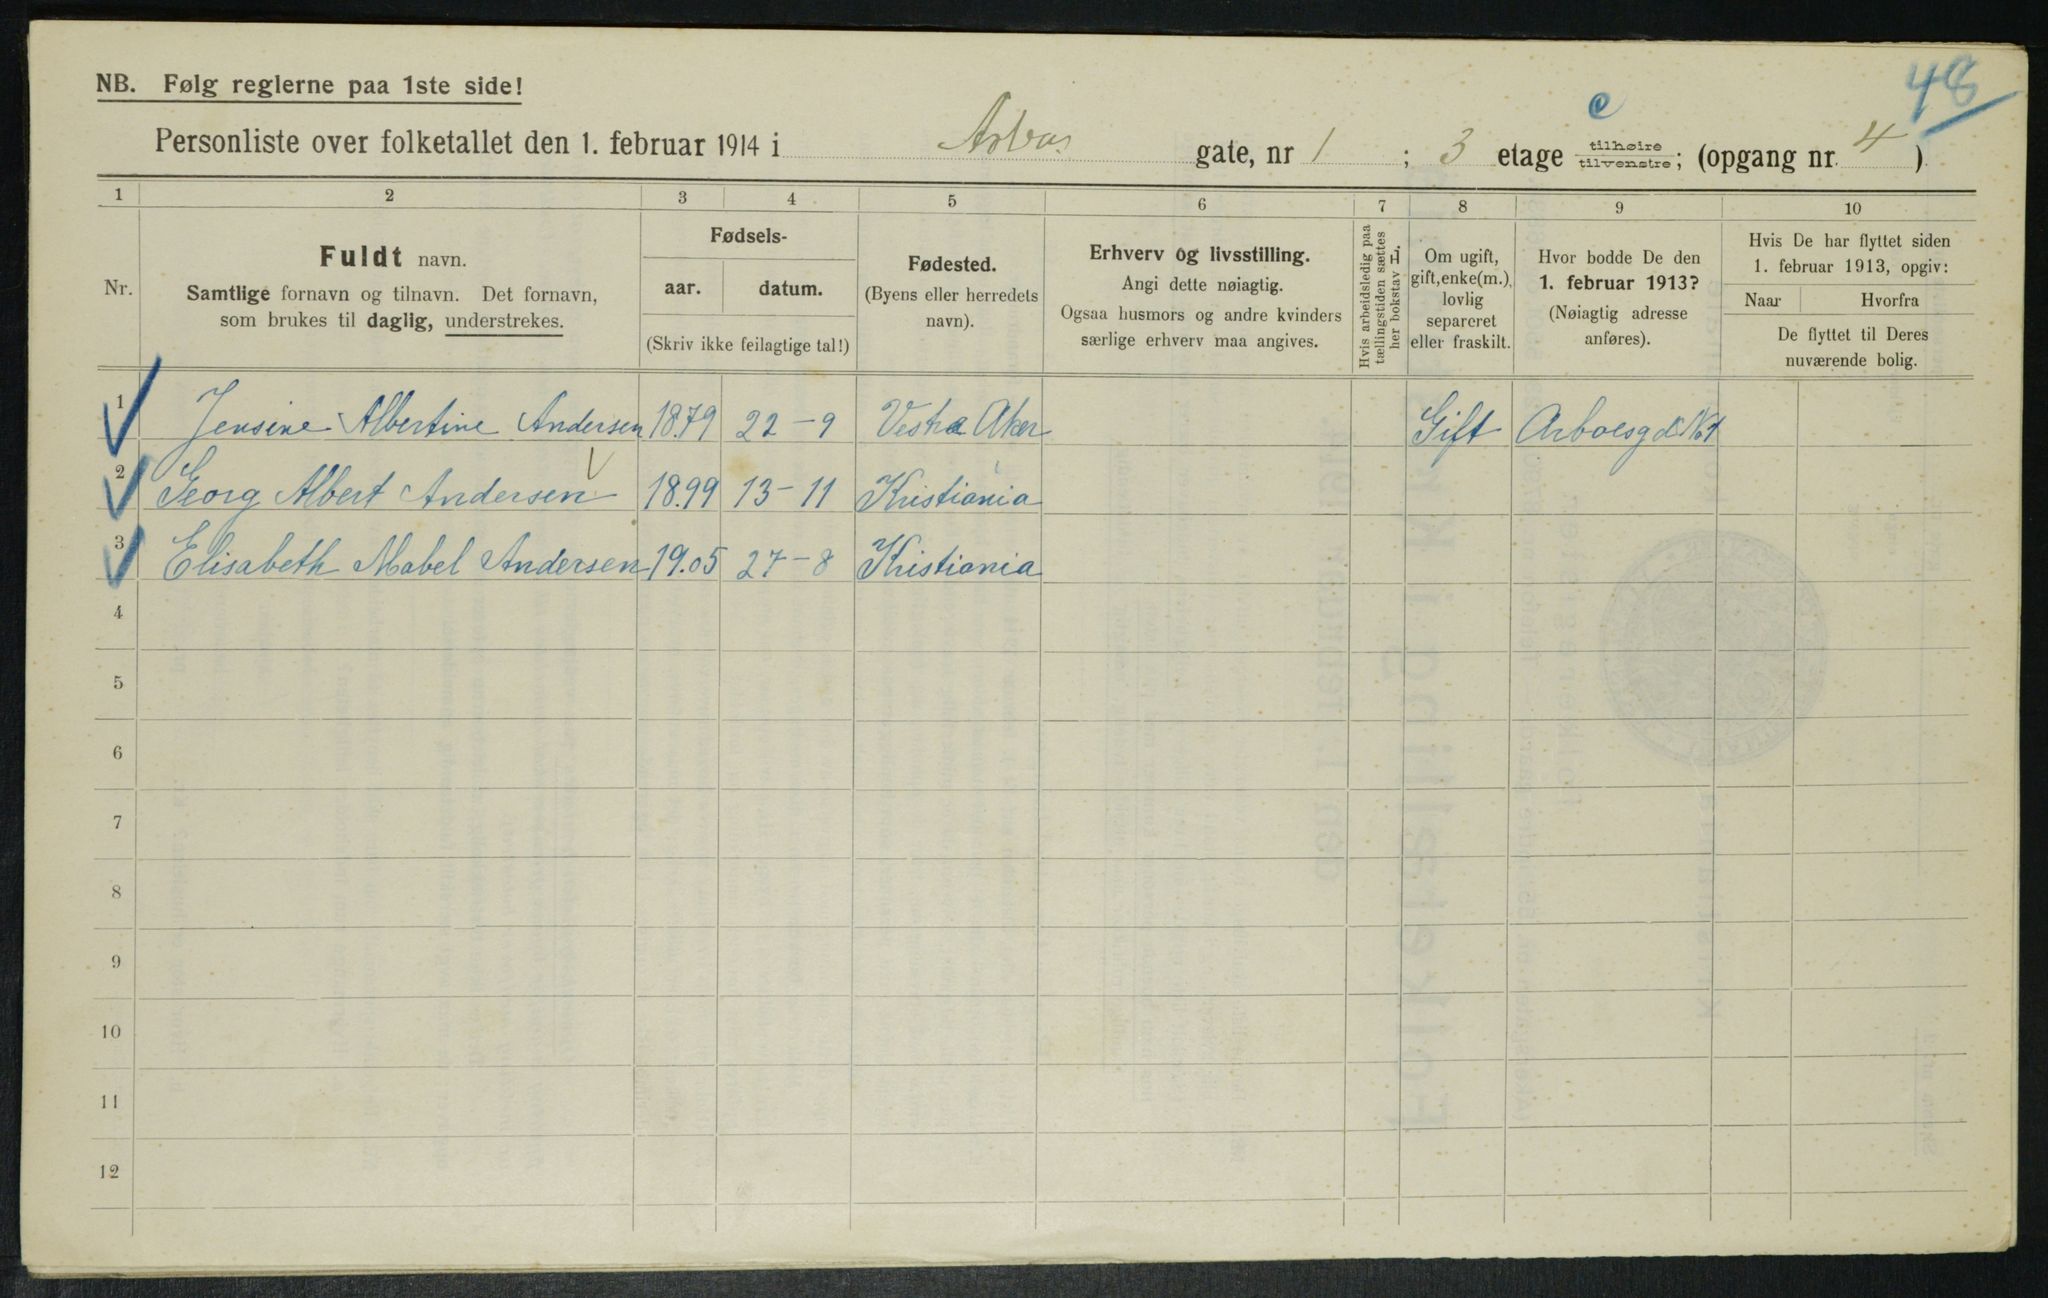 48
NB. Følg reglerne paa 1ste side!
c
Personliste over folketallet den 1. februar 1914 i Arbos gate, nr 1 ; 3 etage tilhøire tilvenstre; (opgang nr. 4 )
1 2 3 4 5 6 7 8 9 10
Nr.
Fuldt navn.
Samtlige fornavn og tilnavn. Det fornavn,
som brukes til daglig, understrekes.
Fødsels-
aar. datum.
(Skriv ikke feilagtige tal!)
Fødested.
(Byens eller herredets
navn).
Erhverv og livsstilling.
Angi dette nøiagtig.
Ogsaa husmors og andre kvinders
særlige erhverv maa angives.
Hvis arbeidsledig paa
tællingstiden sættes
her bokstav L.
Om ugift,
gift, enke(m.),
lovlig
separeret
eller fraskilt.
Hvor bodde De den
1. februar 1913?
(Nøiagtig adresse
anføres).
Hvis De har flyttet siden
1. februar 1913, opgiv:
Naar Hvorfra
De flyttet til Deres
nuværende bolig.
1 Jensine Albertine Andersen 1879 22-9 Vestre Aker Gift Arboesgd No 1
2 Georg Albert Andersen 18.99 13-11 Kristiania
3 Elisabeth Mabel Andersen 19.05 27-8 Kristiania
4
5
6
7
8
9
10
11
12